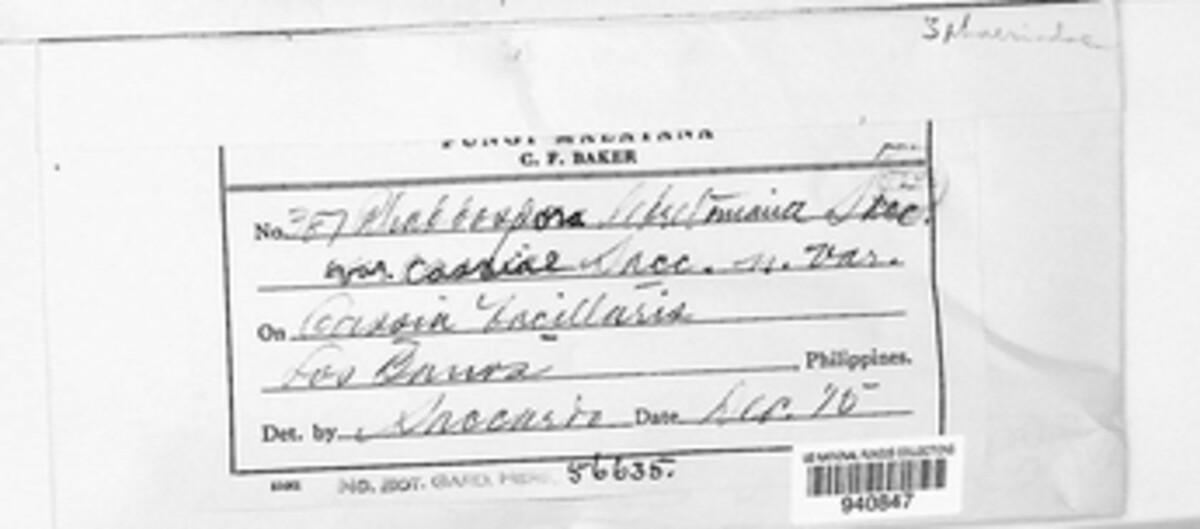 Sphaeriales
FUNGI MALAYANA
C. F. BAKER
No. 387 Sacc.
var. Cassiae Sacc. n. var.
On Cassia bacillaris
Los Banos Philippines.
Det. by Saccardo Date
MO. BOT. GARD. HERB. 56635.
US NATIONAL FUNGUS COLLECTIONS
940847